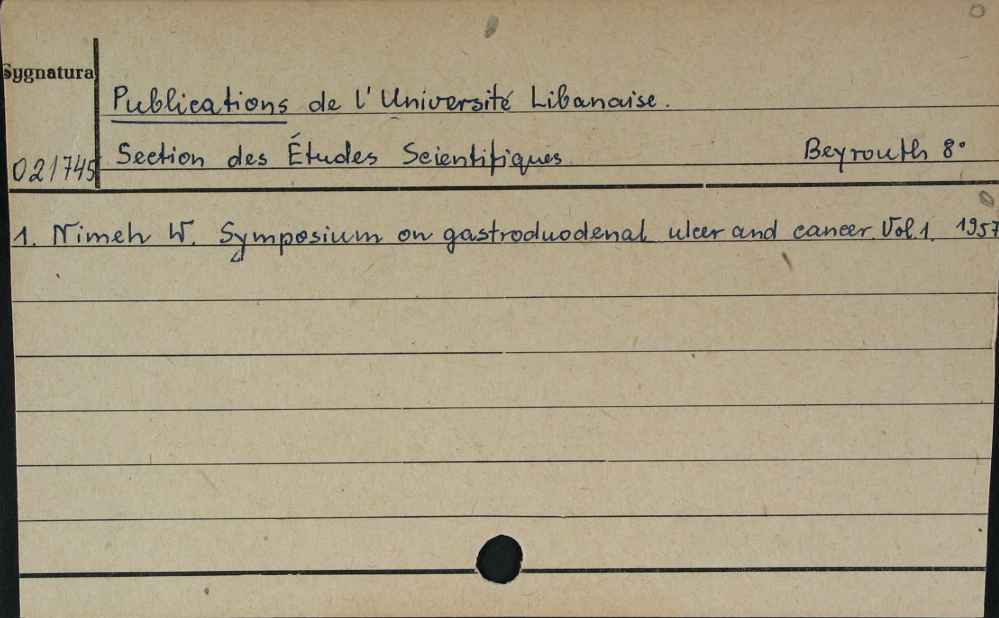 Sygnatura
Publications de l'Université Libanaise.
021745 Section des Études Scientifiques Beyrouth 8°
1. Nimeh W. Symposium on gastroduodenal ulcer and cancer. Vol. 1. 1957